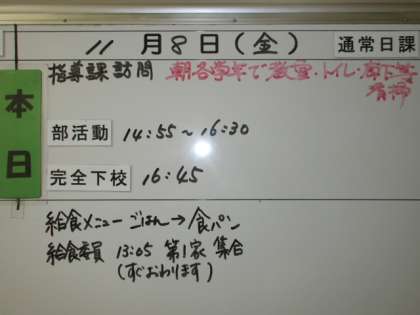 11月8日(金) 通常日課
本日
指導課訪問 朝各学年で教室・トイレ・廊下等
清掃
部活動 14:55～16:30
完全下校 16:45
給食メニュー ごはん→食パン
給食委員 13:05 第1家 集合
(すぐおわります)